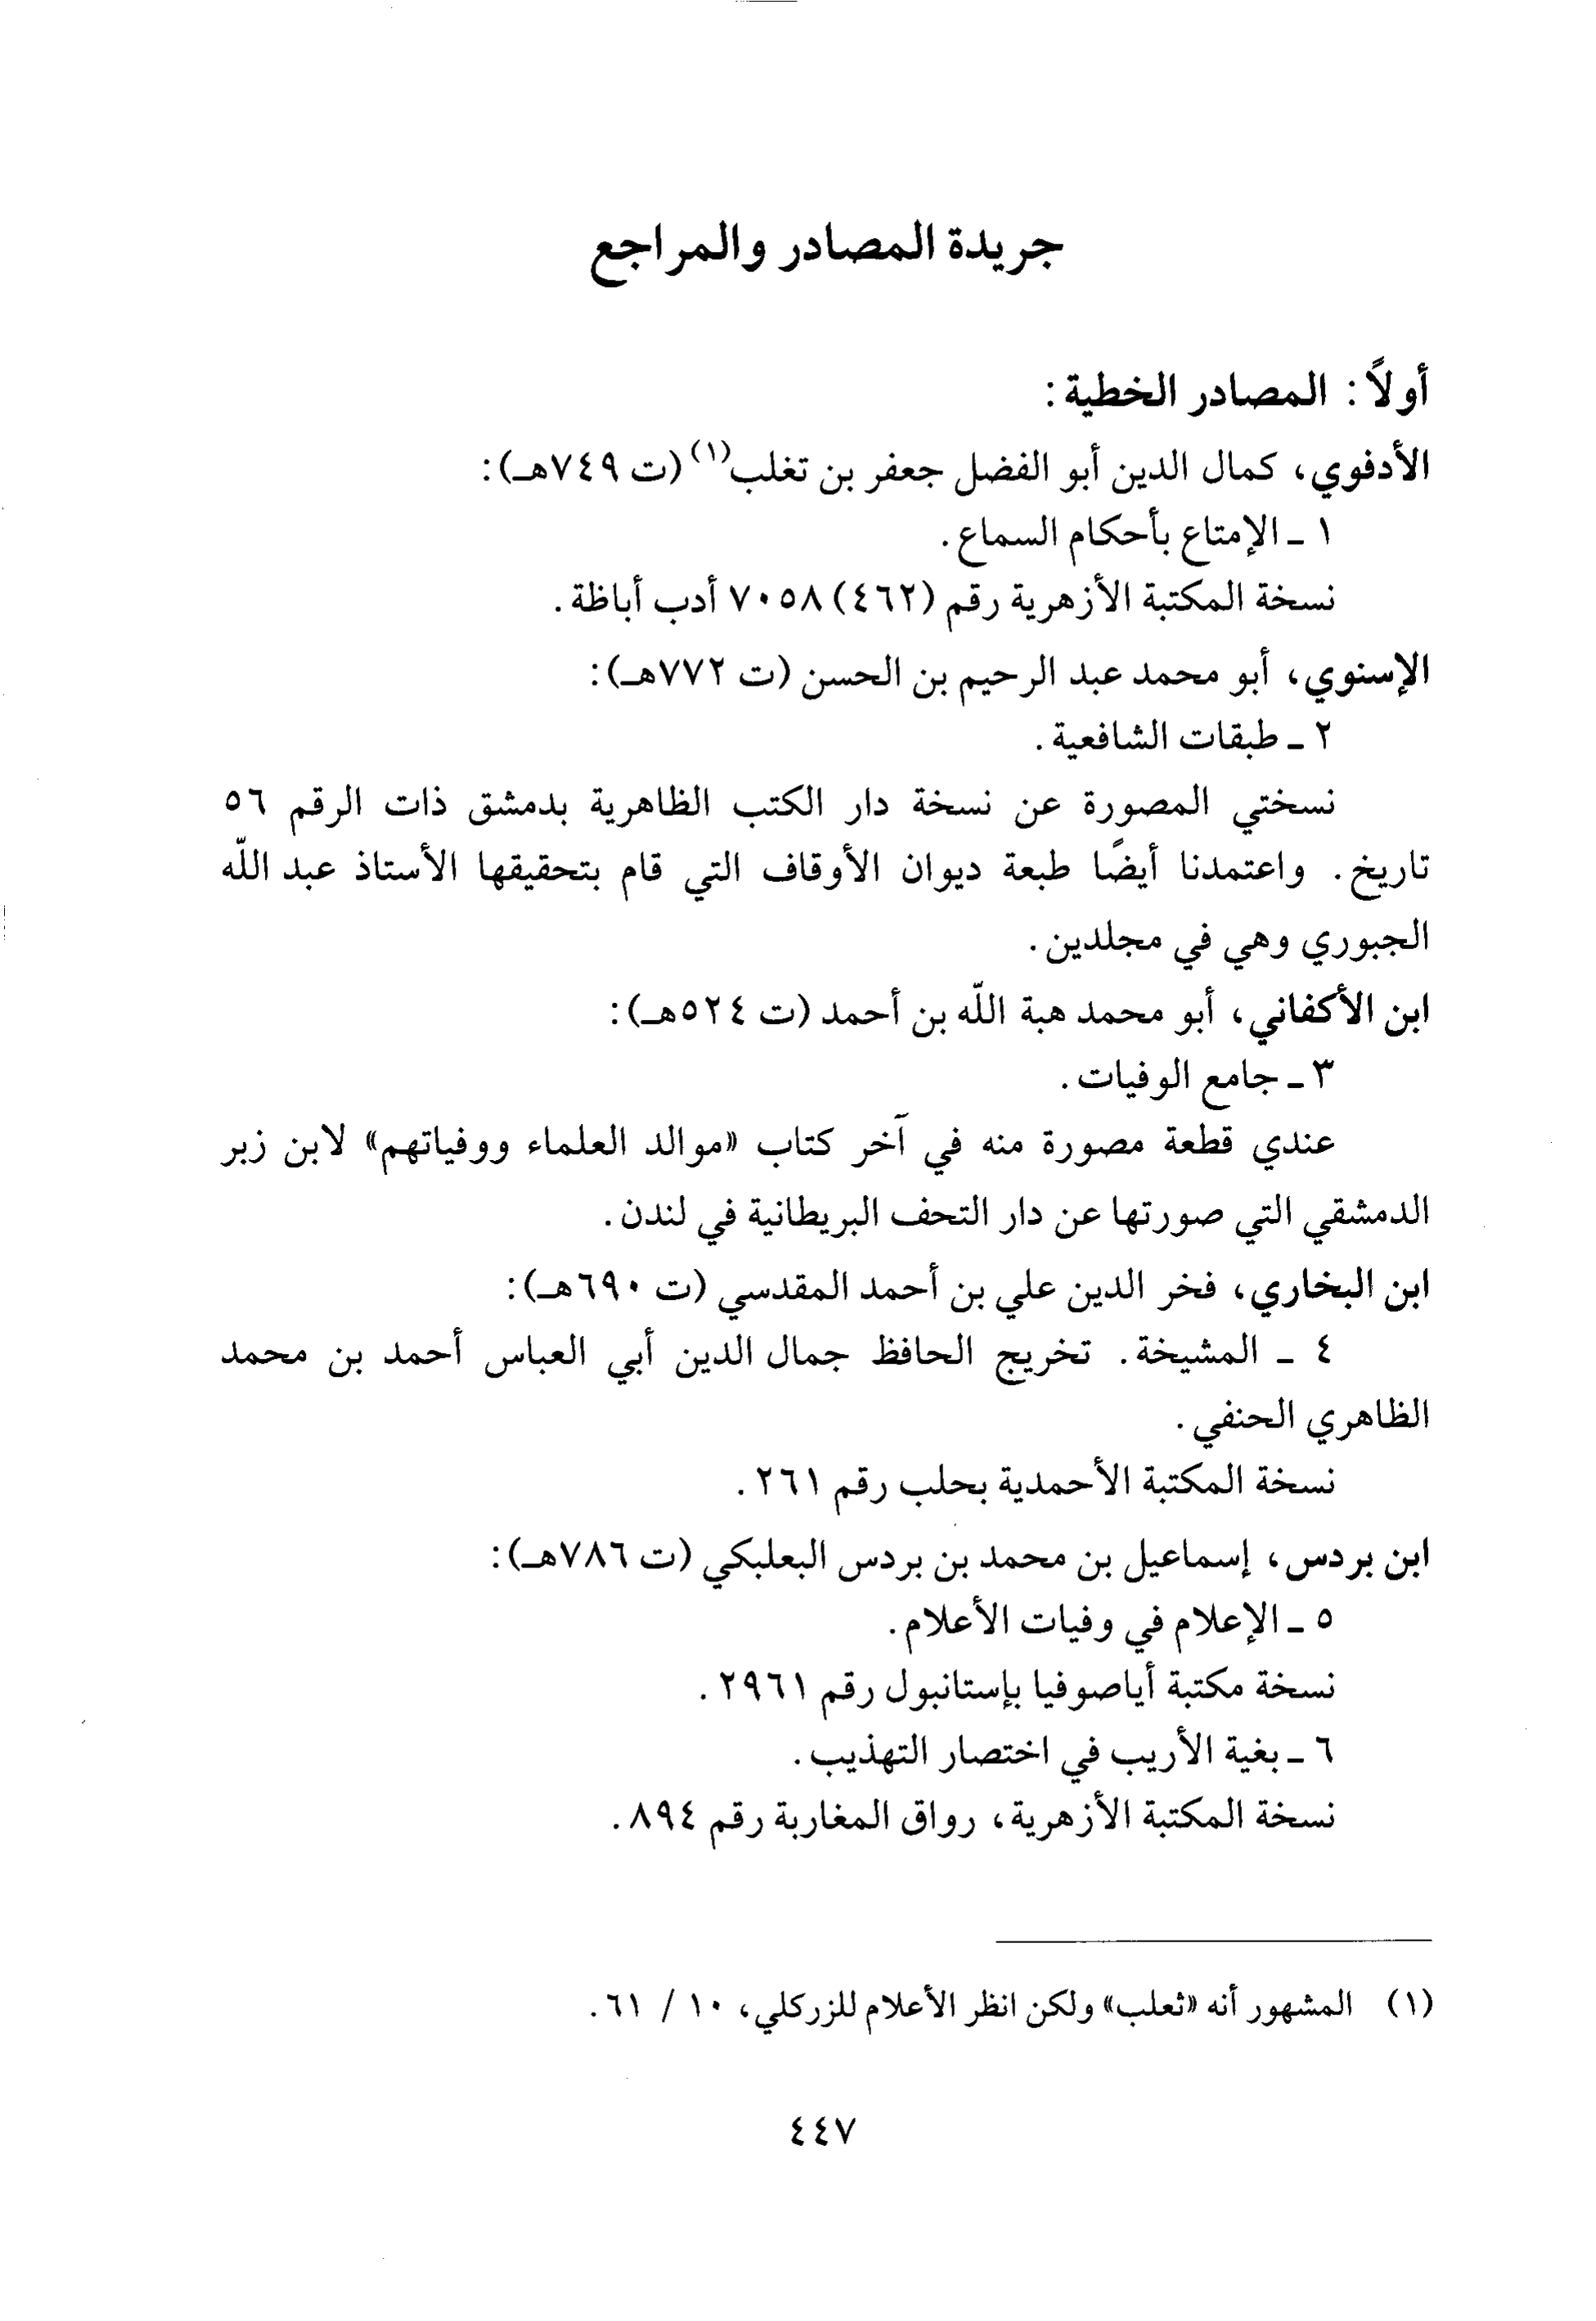 جريدة المصادر والمراجع
أولاً: المصادر الخطية:
الأدفوي، كمال الدين أبو الفضل جعفر بن تغلب(١) (ت ٧٤٩هـ):
١ ـ الإمتاع بأحكام السماع.
نسخة المكتبة الأزهرية رقم (٤٦٢) ٧٠٥٨ أدب أباظة.
الإسنوي، أبو محمد عبد الرحيم بن الحسن (ت ٧٧٢هـ):
٢ ـ طبقات الشافعية.
نسختي المصورة عن نسخة دار الكتب الظاهرية بدمشق ذات الرقم ٥٦
تاريخ. واعتمدنا أيضًا طبعة ديوان الأوقاف التي قام بتحقيقها الأستاذ عبد اللّه
الجبوري وهي في مجلدين.
ابن الأكفاني، أبو محمد هبة اللّه بن أحمد (ت ٥٢٤هـ):
٣ ـ جامع الوفيات.
عندي قطعة مصورة منه في آخر كتاب «موالد العلماء ووفياتهم» لابن زبر
الدمشقي التي صورتها عن دار التحف البريطانية في لندن.
ابن البخاري، فخر الدين علي بن أحمد المقدسي (ت ٦٩٠هـ):
٤ ـ المشيخة. تخريج الحافظ جمال الدين أبي العباس أحمد بن محمد
الظاهري الحنفي.
نسخة المكتبة الأحمدية بحلب رقم ٢٦١.
ابن بردس، إسماعيل بن محمد بن بردس البعلبكي (ت ٧٨٦هـ):
٥ ـ الإعلام في وفيات الأعلام.
نسخة مكتبة أياصوفيا بإستانبول رقم ٢٩٦١.
٦ ـ بغية الأريب في اختصار التهذيب.
نسخة المكتبة الأزهرية، رواق المغاربة رقم ٨٩٤.
(١) المشهور أنه «ثعلب» ولكن انظر الأعلام للزركلي، ١٠ / ٦١.
٤٤٧